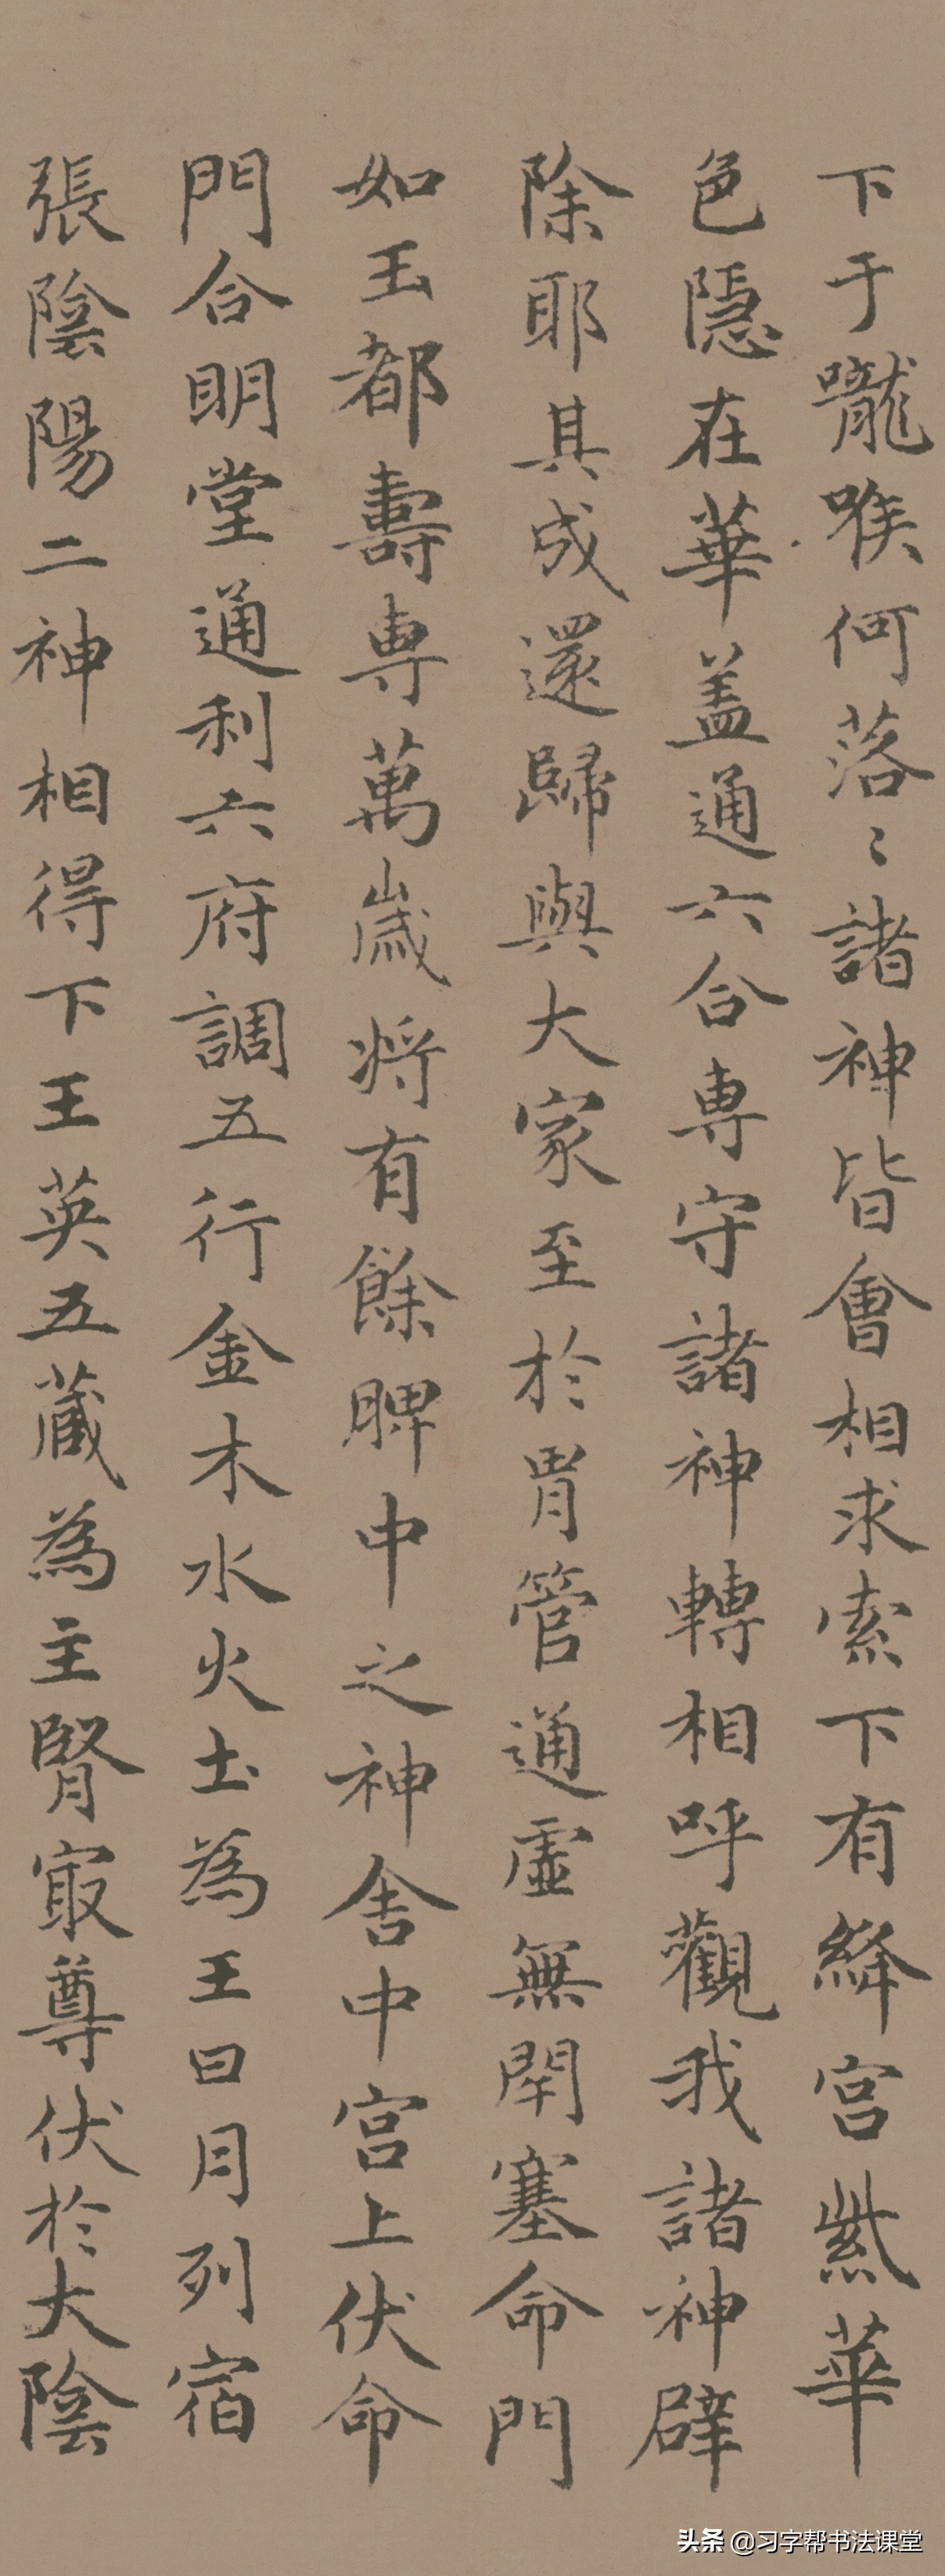 下于嚨喉何落〻諸神皆會相求索下有絳宫紫華
色隱在華盖通六合専守諸神轉相呼觀我諸神辟
除耶其成還歸與大家至於胃管通虛無閇塞命門
如玉都壽専萬歲将有餘脾中之神舎中宫上伏命
門合明堂通利六府調五行金木水火土為王日月列宿
張陰陽二神相得下王英五藏為主腎㝡尊伏於大陰
头条 @习字帮书法课堂